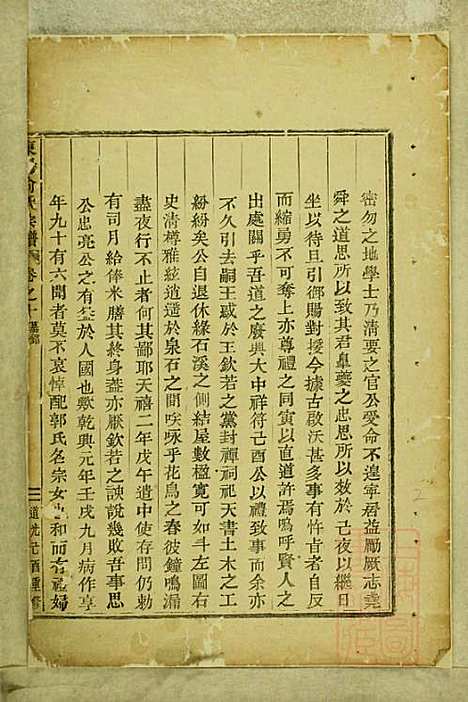 密勿之地學士乃清要之官公受命不遑寧居益勵厥志堯
舜之道思所以致其君臯夔之忠思所以效於己夜以繼日
坐以待旦引御賜對援今據古啟沃甚多事有忤旨者自反
而縮勇不可奪上亦尊禮之同寅以直道許焉嗚呼賢人之
出處關乎吾道之廢興大中祥符己酉公以微事而余亦
不久引去嗣王氣於王欽若之黨封禪祠祀天書土木之工
紛紛矣公自退休緣石溪之側結屋數楹寬可如斗左圖右
史清尊雅絃逍遥於泉石之間咲咏乎花鳥之春彼鐘鳴漏
盡夜行不止者何其鄙耶天禧二年戊午遣中使存問仍勅
有司月給俸米膳其終身葢亦厭欽若之諛說幾敗吾事思
公忠亮公之有益於人國也歟乾興元年壬戌九月病作享
年九十有六聞者莫不哀悼配郭氏名宗女也和而有禮婦
氏宗譜 卷之十 墓誌
道光己酉重修